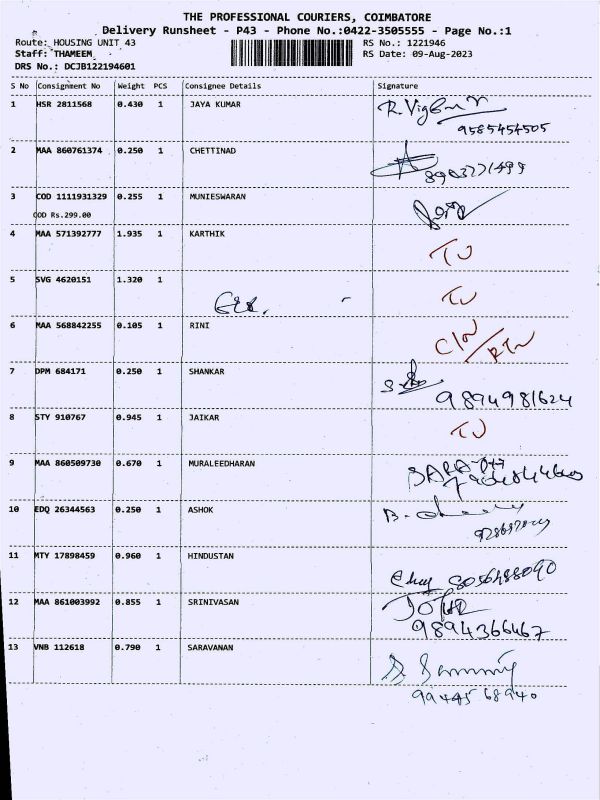 THE PROFESSIONAL COURIERS, COIMBATORE
Delivery Runsheet - P43 - Phone No.:0422-3505555 - Page No.:1
Route: HOUSING UNIT 43 RS No.: 1221946
Staff: THAMEEM RS Date: 09-Aug-2023
DRS No.: DCJB122194601
S No Consignment No Weight PCS Consignee Details Signature
1 HSR 2811568 0.430 1 JAYA KUMAR
9585454505
2 MAA 860761374 0.250 1 CHETTINAD
3 COD 1111931329 0.255 1 MUNIESWARAN
COD Rs.299.00
4 MAA 571392777 1.935 1 KARTHIK
5 SVG 4620151 1.320 1
6 MAA 568842255 0.105 1 RINI
7 DPM 684171 0.250 1 SHANKAR
9894981624
8 STY 910767 0.945 1 JAIKAR
9 MAA 860509730 0.670 1 MURALEEDHARAN
10 EDQ 26344563 0.250 1 ASHOK
11 MTY 17898459 0.960 1 HINDUSTAN
8056488090
12 MAA 861003992 0.855 1 SRINIVASAN
9894366467
13 VNB 112618 0.790 1 SARAVANAN